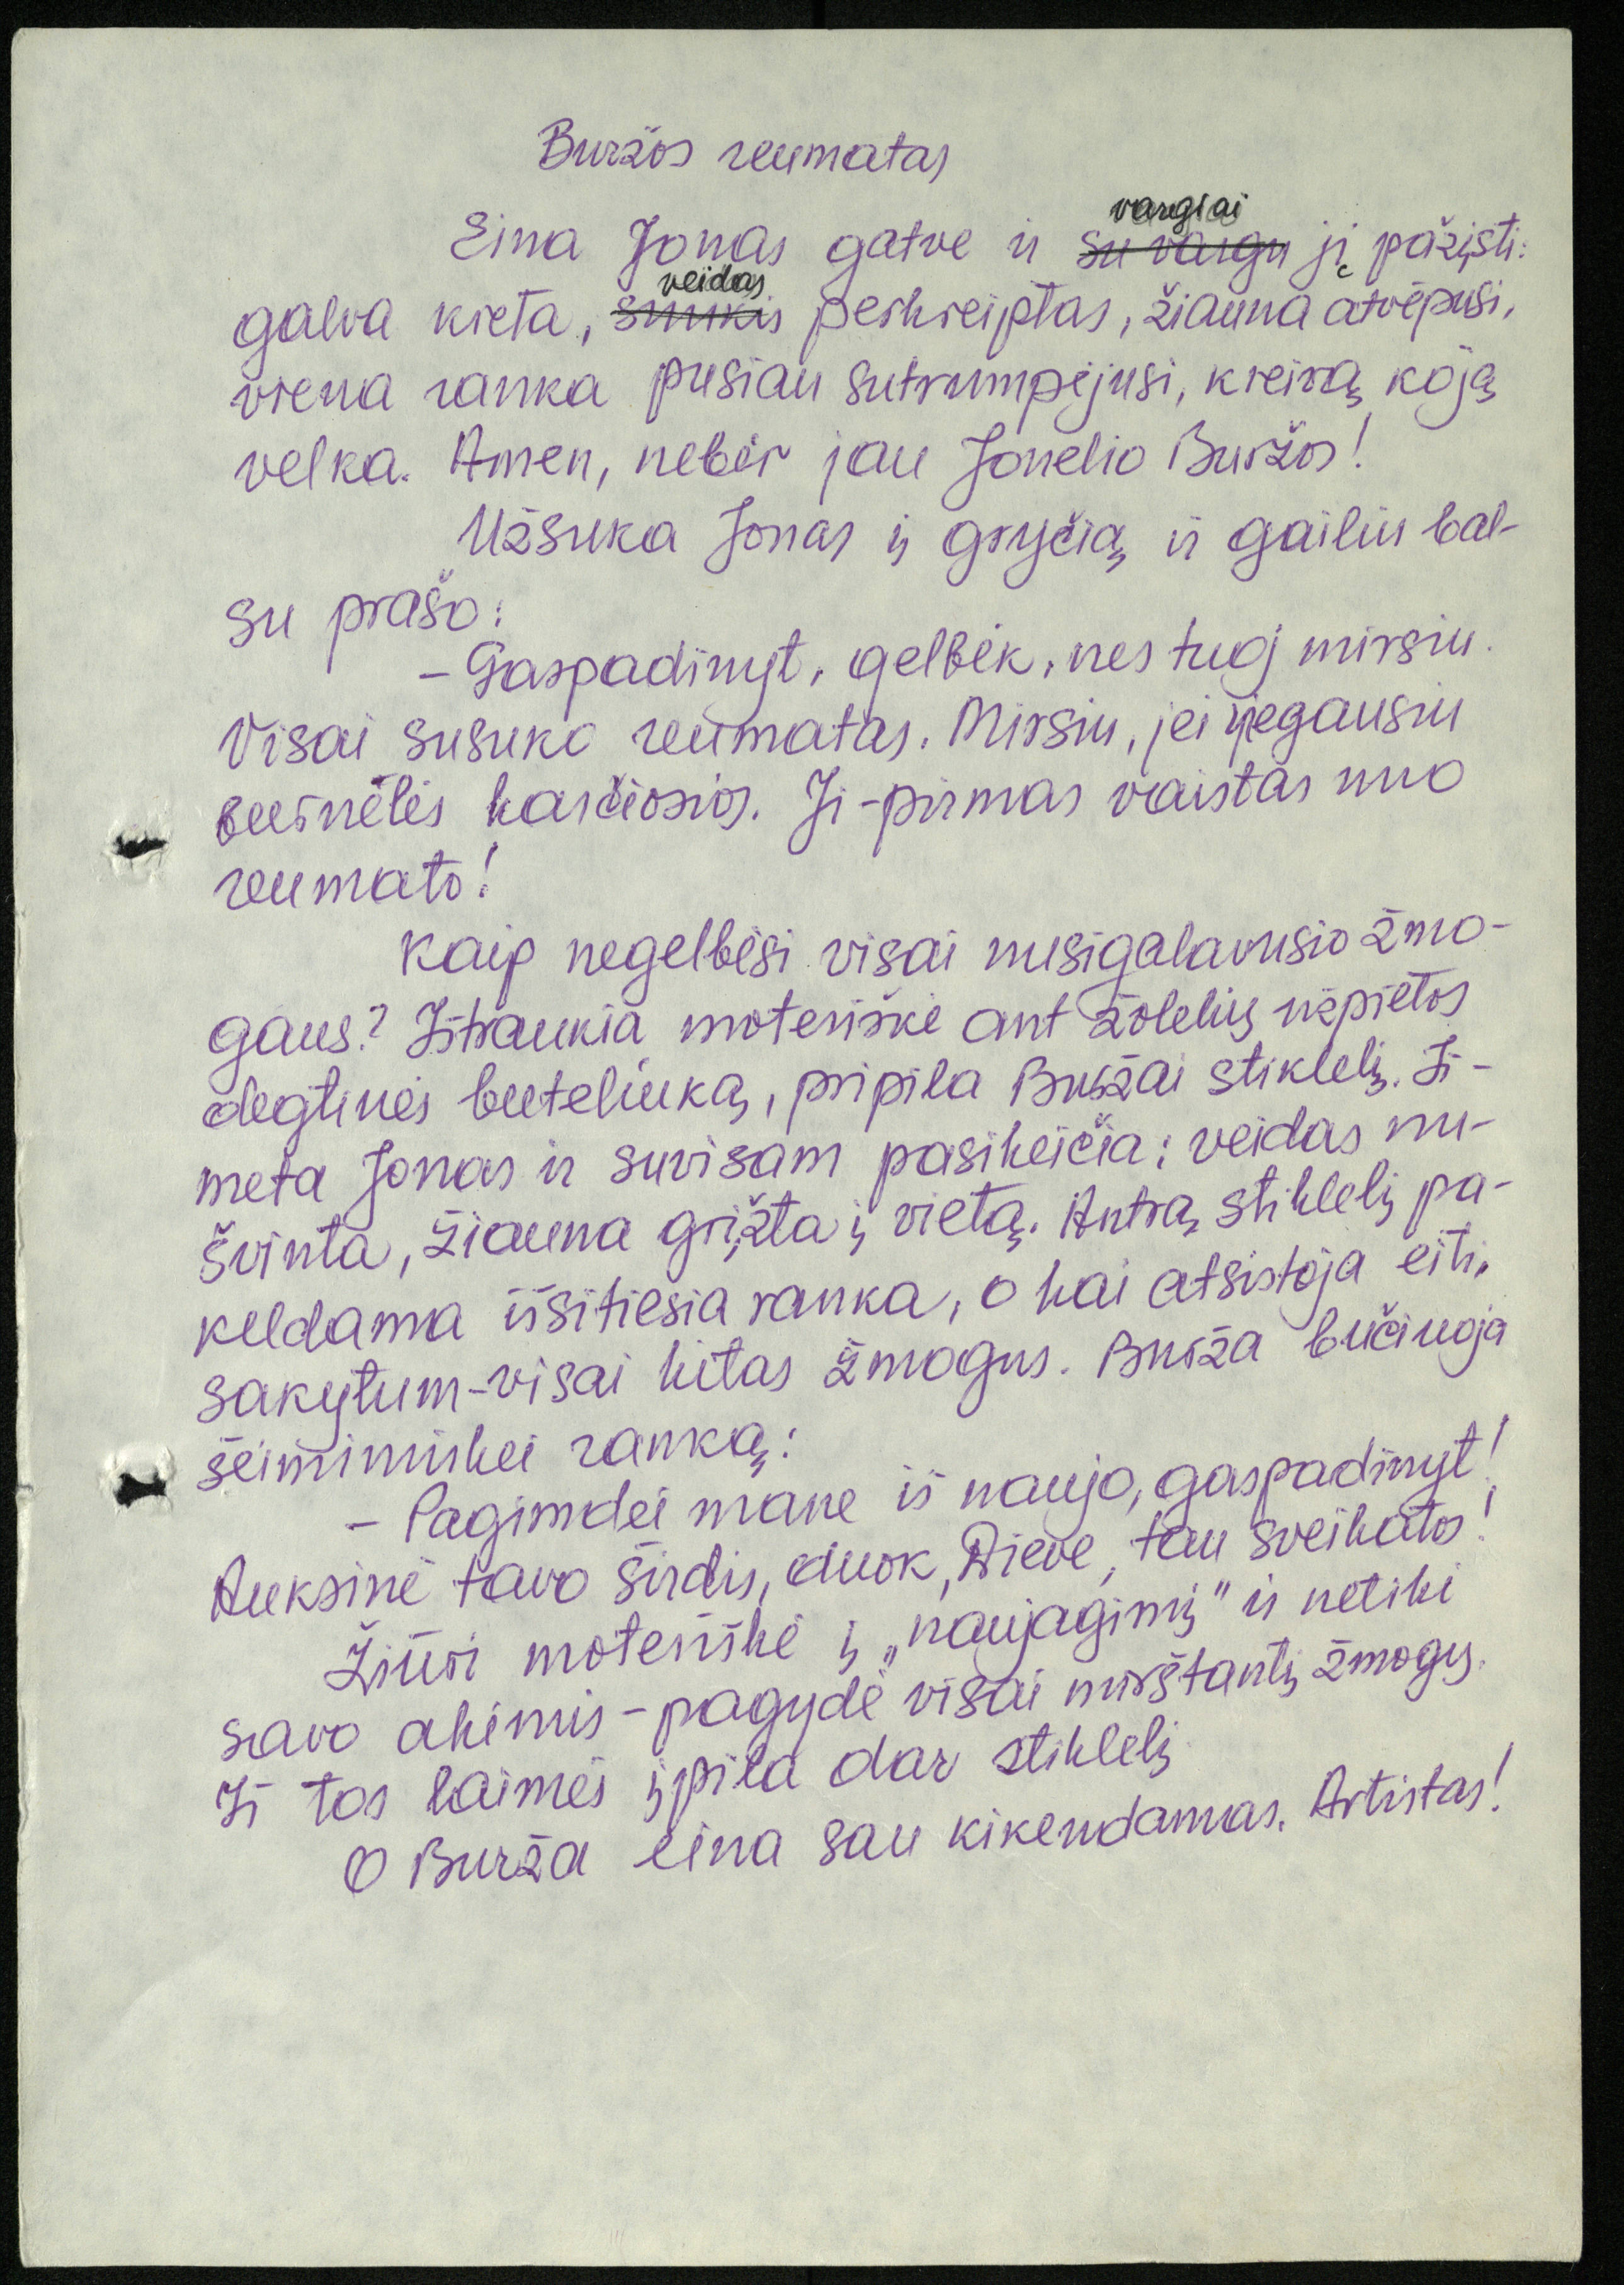 Buržos reumatas
Eina Jonas gatve ir su vargu vargiai jį pažįsti:
galva kreta, snukis veidas perkreiptas, žiauna atvėpusi,
viena ranka pusiau sutrumpėjusi, kreivą koją
velka. Amen, nebėr jau Jonelio Buržos!
Užsuka Jonas į gryčią ir gailiu bal-
su prašo:
- Gaspadinyt, gelbėk, nes tuoj mirsiu.
Visai susuko reumatas. Mirsiu, jei negausiu
burnelės karčiosios. Ji - pirmas vaistas nuo
reumato!
Kaip negelbėsi visai nusigalavusio žmo-
gaus? Ištraukia moteriškė ant žolelių užpiltos
degtinės buteliuką, pripila Buržai stiklelį. Iš-
meta Jonas ir suvisam pasikeičia: veidas nu-
švinta, žiauna grįžta į vietą. Antrą stiklelį pa-
keldama išsitiesia ranka, o kai atsistoja eiti,
sakytum - visai kitas žmogus. Burža bučiuoja
šeimininkei ranką:
- Pagimdei mane iš naujo, gaspadinyt!
Auksinė tavo širdis, duok, Dieve, tau sveikatos!
Žiūri moteriškė į „naujagimį" ir netiki
savo akimis - pagydė visai mirštantį žmogų.
Iš tos laimės įpila dar stiklelį
O Burža eina sau kikendamas. Artistas!